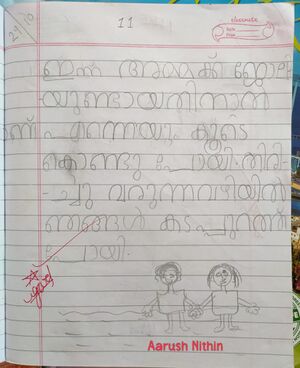 11
classmate
Date
Page
ഇന്ന് അമ്മക്ക് ജോലി
യുണ്ടായതിനാൽ
എന്നെയും കൂടെ
കൊണ്ടു പോയി. തിരി-
ച്ചു വരുന്നവഴിയിൽ
ഞങ്ങൾ കടപ്പുറത്ത്
പോയി.
Aarush Nithin